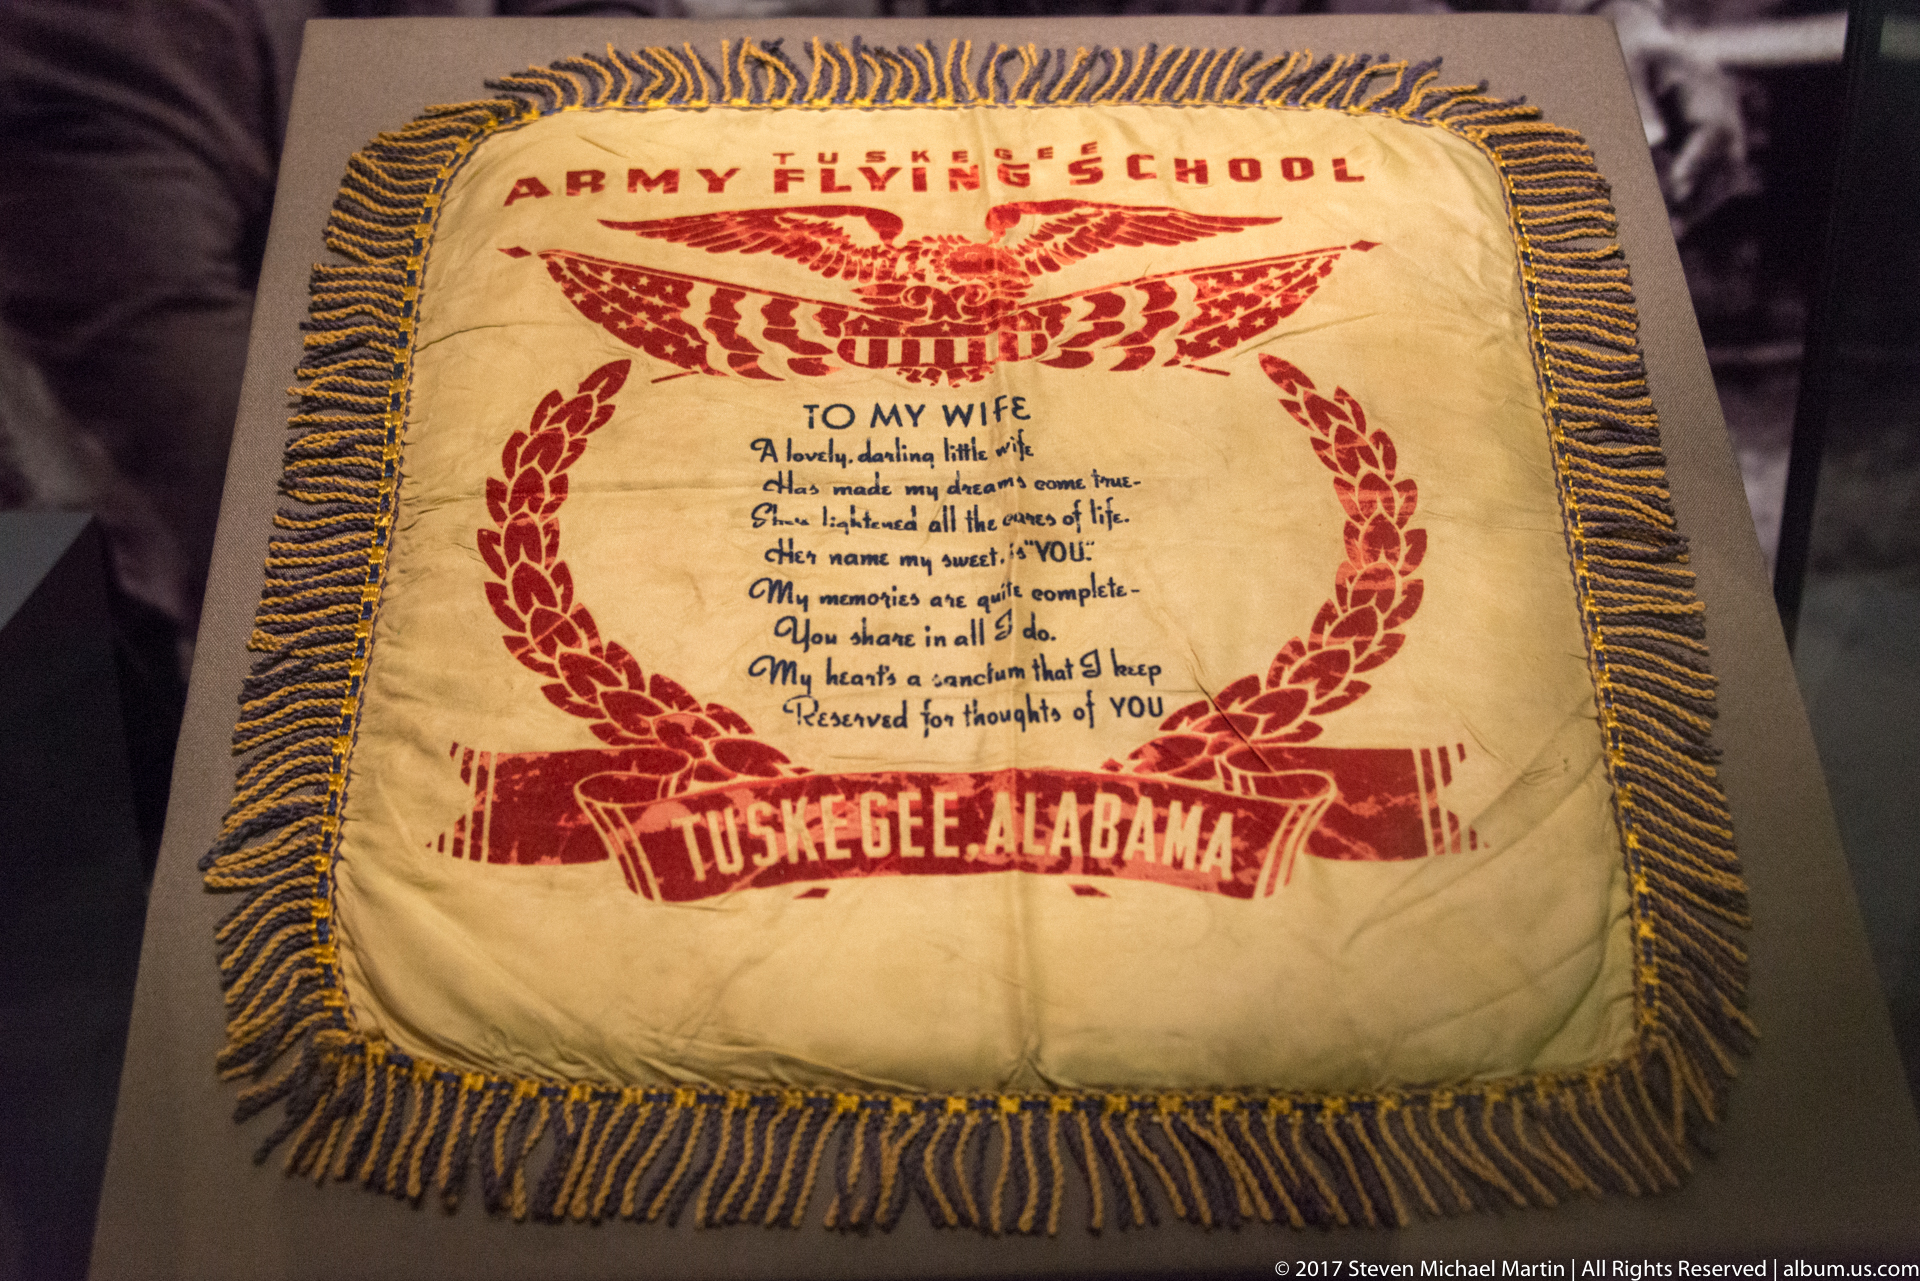 TUSKEGEE
ARMY FLYING SCHOOL
TO MY WIFE
A lovely, darling little wife
Has made my dreams come true-
She's lightened all the cares of life.
Her name my sweet, is "YOU."
My memories are quite complete-
You share in all I do.
My heart's a sanctum that I keep
Reserved for thoughts of YOU
TUSKEGEE, ALABAMA
© 2017 Steven Michael Martin | All Rights Reserved | album.us.com